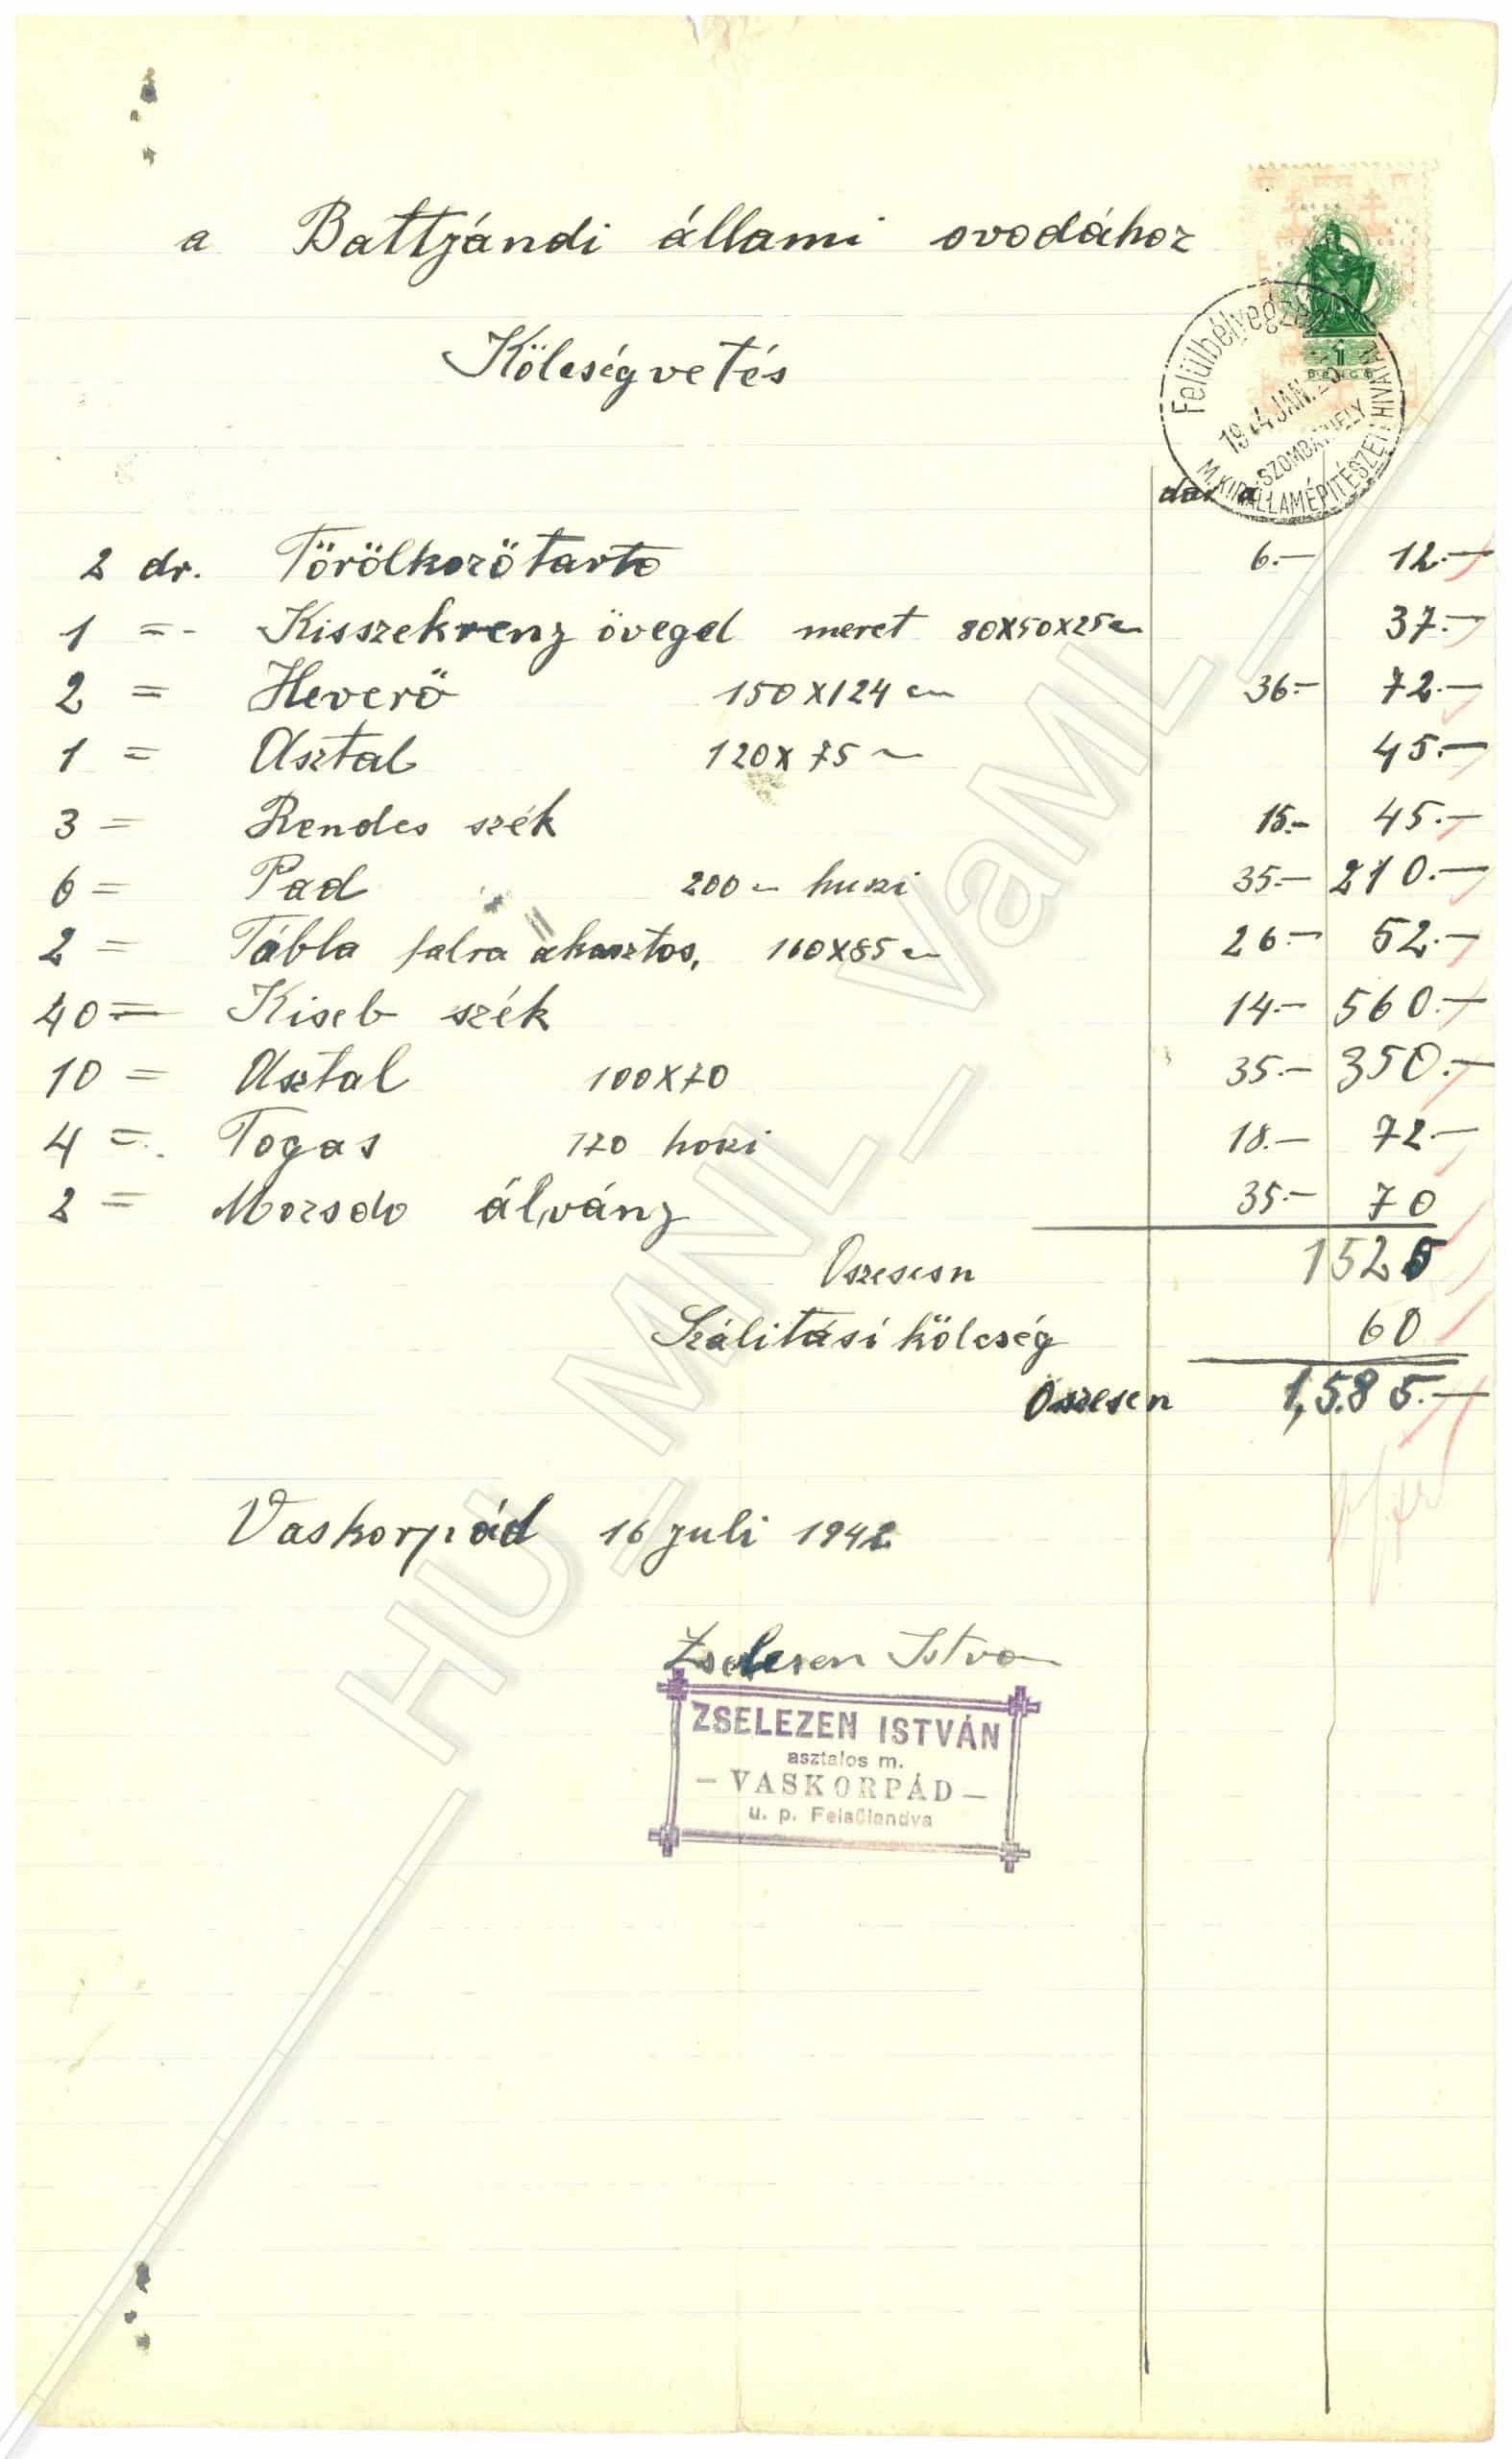 a Battjándi állami ovodához
Kölcségvetés
1 PENGŐ
Felülbélyegzés
JAN.
SZOMBATHELY
M. KIR. ÁLLAMÉPITÉSZETI HIVATAL
2 dr. Törölkozőtarto 6.— 12.—
1 =- Kisszekrenj övegel meret 80X50X25 37.—
2 = Heverő 150X124 cm 36.— 72.—
1 = Asztal 120X75 45.—
3 = Rendes szék 15.- 45.—
6 = Pad 200 huzi 35.— 210.—
2 = Tábla falra akasztos, 160X85 26.— 52.—
40 = Kiseb szék 14.— 560.—
10 = Asztal 100X70 35.— 350.—
4 =. Fogas 170 hozi 18.— 72.—
2 = Mozsdo álvánj 35.— 70
Oszesesn 1525
Szálitási kölcség 60
Öszesen 1,585.—
Vaskorpád 16 juli 1942
Zselesen Istva
ZSELEZEN ISTVÁN
asztalos m.
— VASKORPÁD —
u. p. Felsőlendva
HU_MNL_VaML_